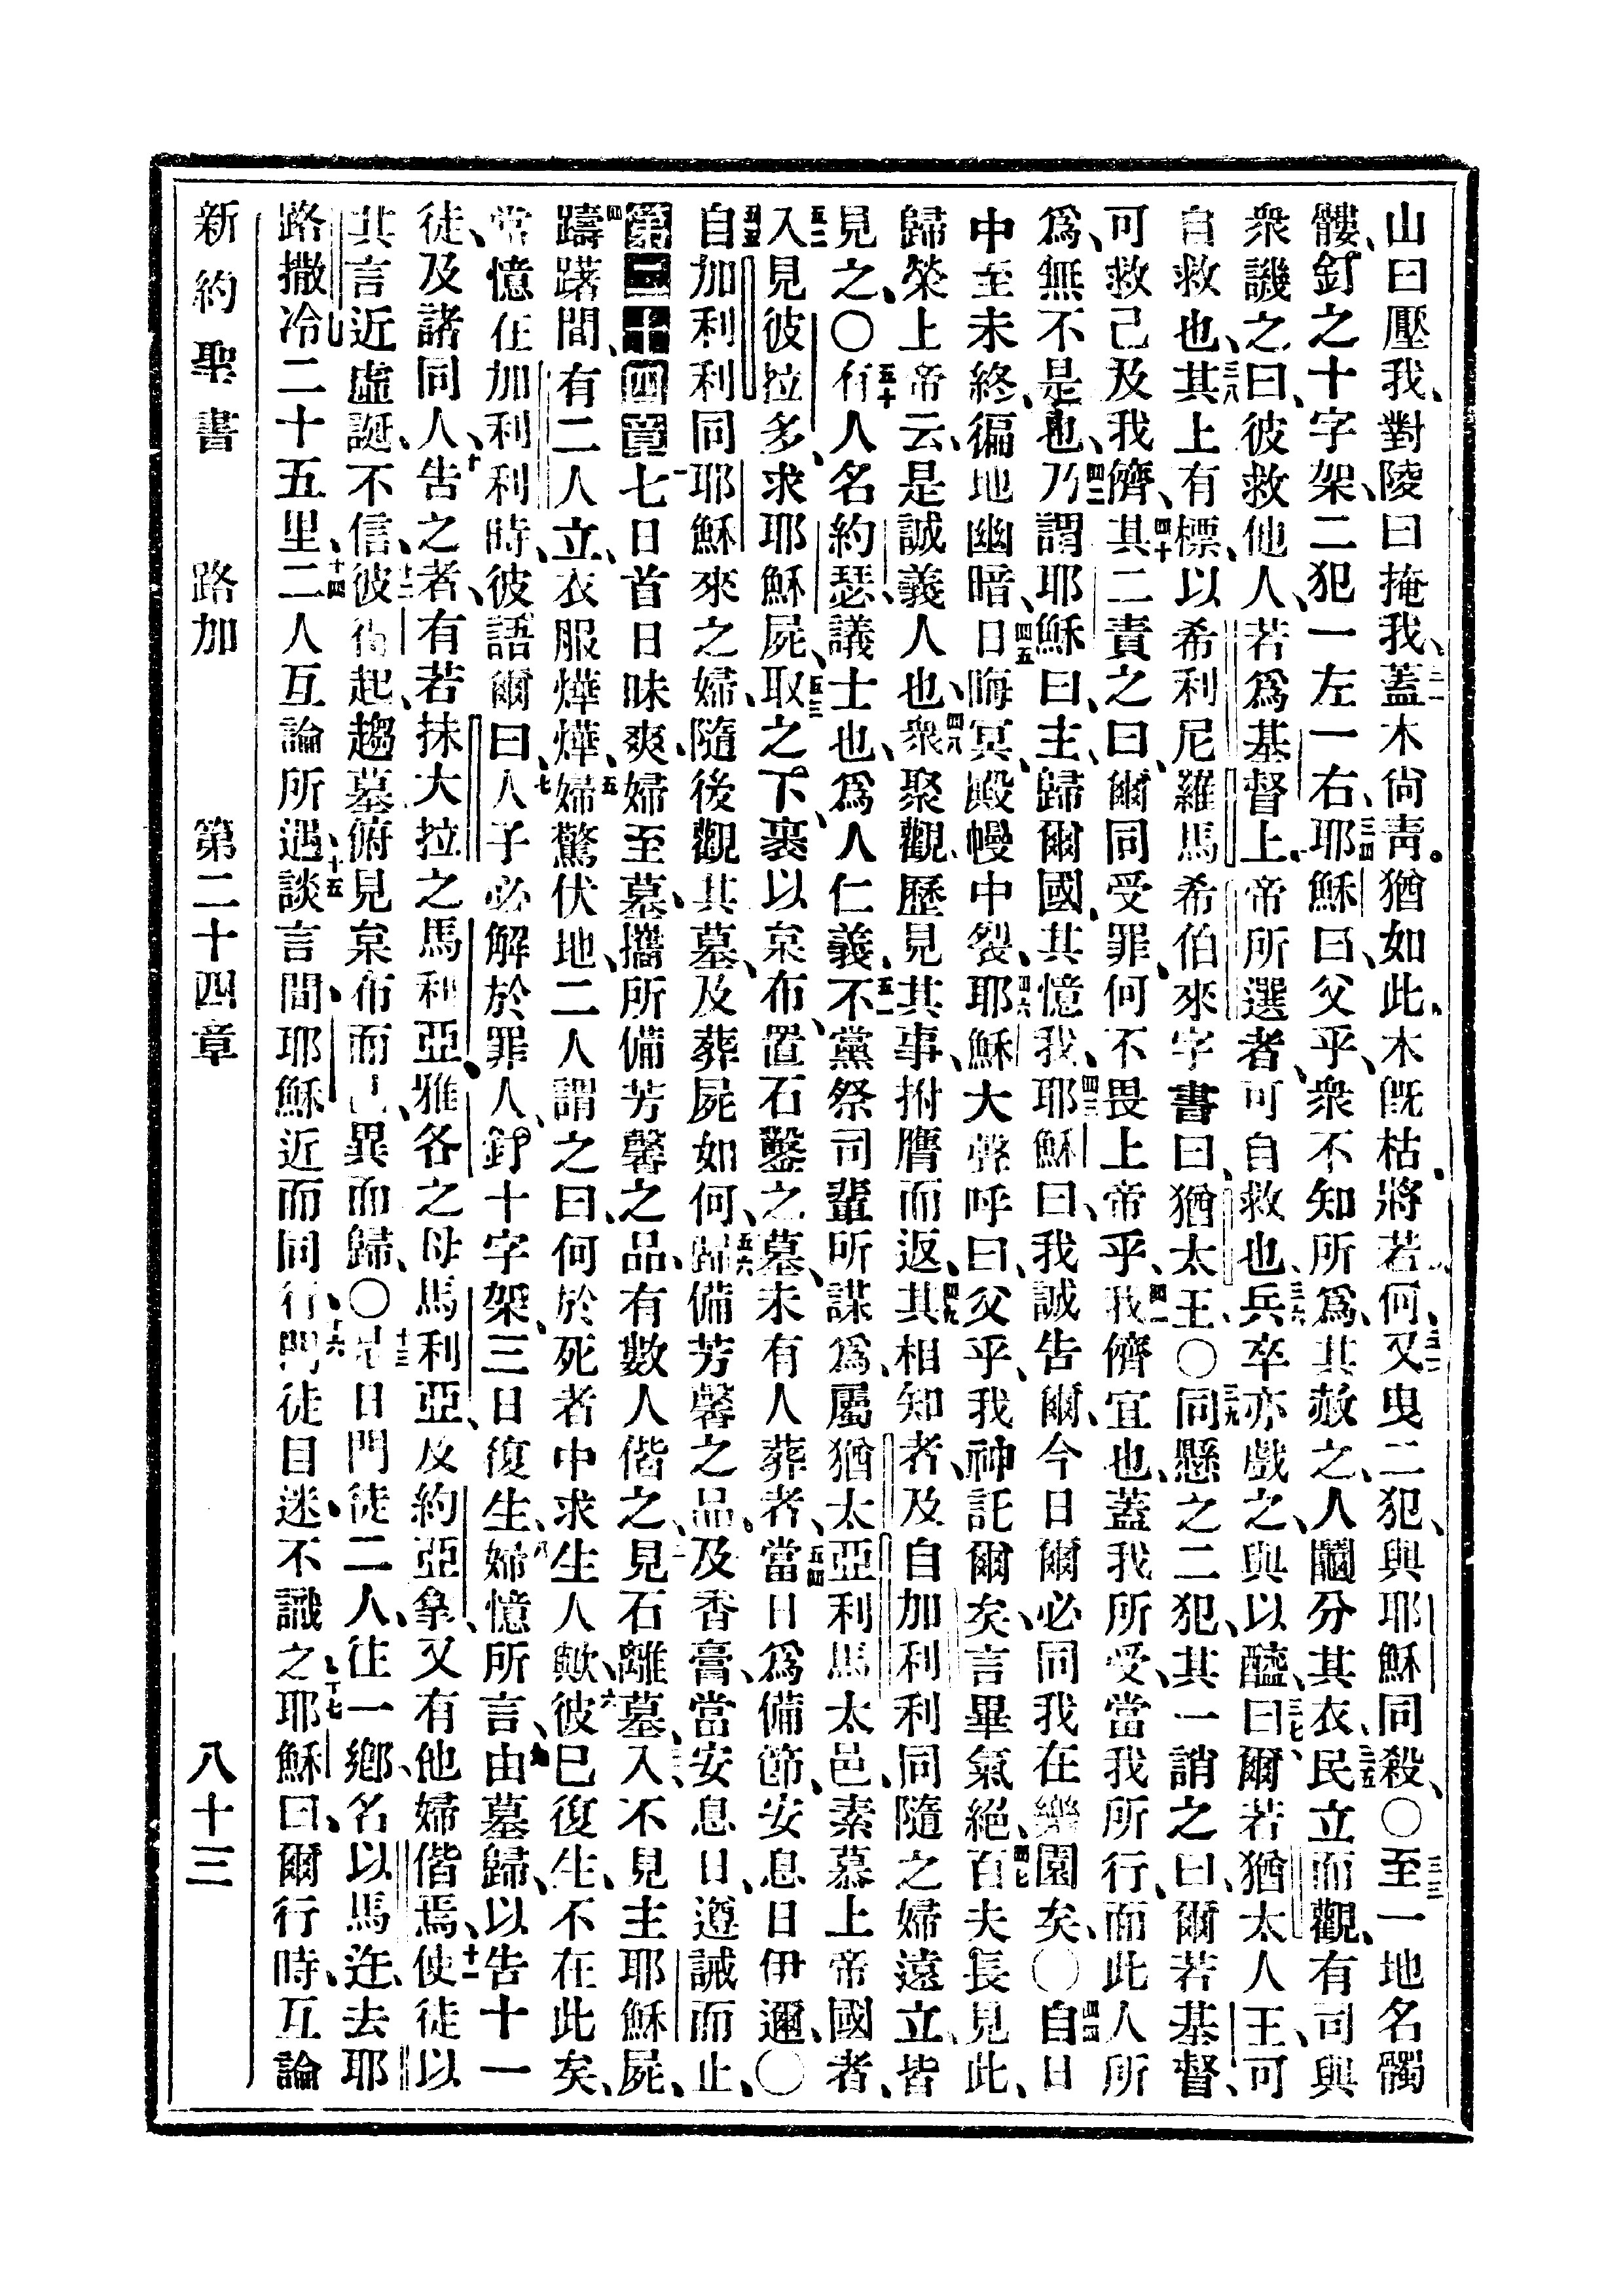 山曰壓我、對陵曰掩我、三一蓋木尙靑。猶如此、木旣枯、將若何、三二又曳二犯、與耶穌同殺、〇三三至一地名髑
髏、釘之十字架、二犯一左一右、三四耶穌曰、父乎、衆不知所爲、其赦之、人鬮分其衣、三五民立而觀、有司與
衆譏之曰、彼救他人、若爲基督上帝所選者、可自救也、三六兵卒亦戲之、與以醯、三七曰、爾若猶太人王、可
自救也、三八其上有標、以希利尼羅馬希伯來字書曰、猶太王、〇三九同懸之二犯、其一誚之曰、爾若基督、
可救己及我儕、四十其二責之曰、爾同受罪、何不畏上帝乎、四一我儕宜也、蓋我所受、當我所行、而此人所
爲、無不是也、四二乃謂耶穌曰、主、歸爾國、其憶我、四三耶穌曰、我誠告爾、今日爾必同我在樂園矣、〇四四自日
中至未終、徧地幽暗、四五日晦冥、殿幔中裂、四六耶穌大聲呼曰、父乎、我神託爾矣、言畢氣絕、四七百夫長見此、
歸榮上帝云、是誠義人也、四八衆聚觀、歷見其事、拊膺而返、四九其相知者、及自加利利同隨之婦遠立、皆
見之、〇五十有人名約瑟、議士也、爲人仁義、五一不黨祭司輩所謀爲、屬猶太亞利馬太邑、素慕上帝國者、
五二入見彼拉多、求耶穌屍、五三取之下、裹以枲布、置石鑿之墓、未有人葬者、五四當日爲備節、安息日伊邇、〇
五五自加利利同耶穌來之婦、隨後觀其墓、及葬屍如何、五六歸備芳馨之品。及香膏、當安息日、遵誡而止、
第二十四章 一七日首日昧爽、婦至墓、攜所備芳馨之品、有數人偕之、二見石離墓、三入不見主耶穌屍、
四躊躇間、有二人立、衣服燁燁、五婦驚伏地、二人謂之曰、何於死者中求生人歟、六彼已復生、不在此矣、
當憶在加利利時、彼語爾曰、七人子必解於罪人、釘十字架、三日復生、八婦憶所言、九由墓歸、以告十一
徒、及諸同人、十告之者、有若抹大拉之馬利亞、雅各之母馬利亞、及約亞拿、又有他婦偕焉、十一使徒以
其言近虛誕、不信、十二彼得起、趨墓俯見枲布而已、異而歸、〇十三是日門徒二人、往一鄕、名以馬迕、去耶
路撒冷二十五里、十四二人互論所遇、十五談言間、耶穌近而同行、十六門徒目迷、不識之、十七耶穌曰、爾行時、互論
新約聖書 路加 第二十四章 八十三